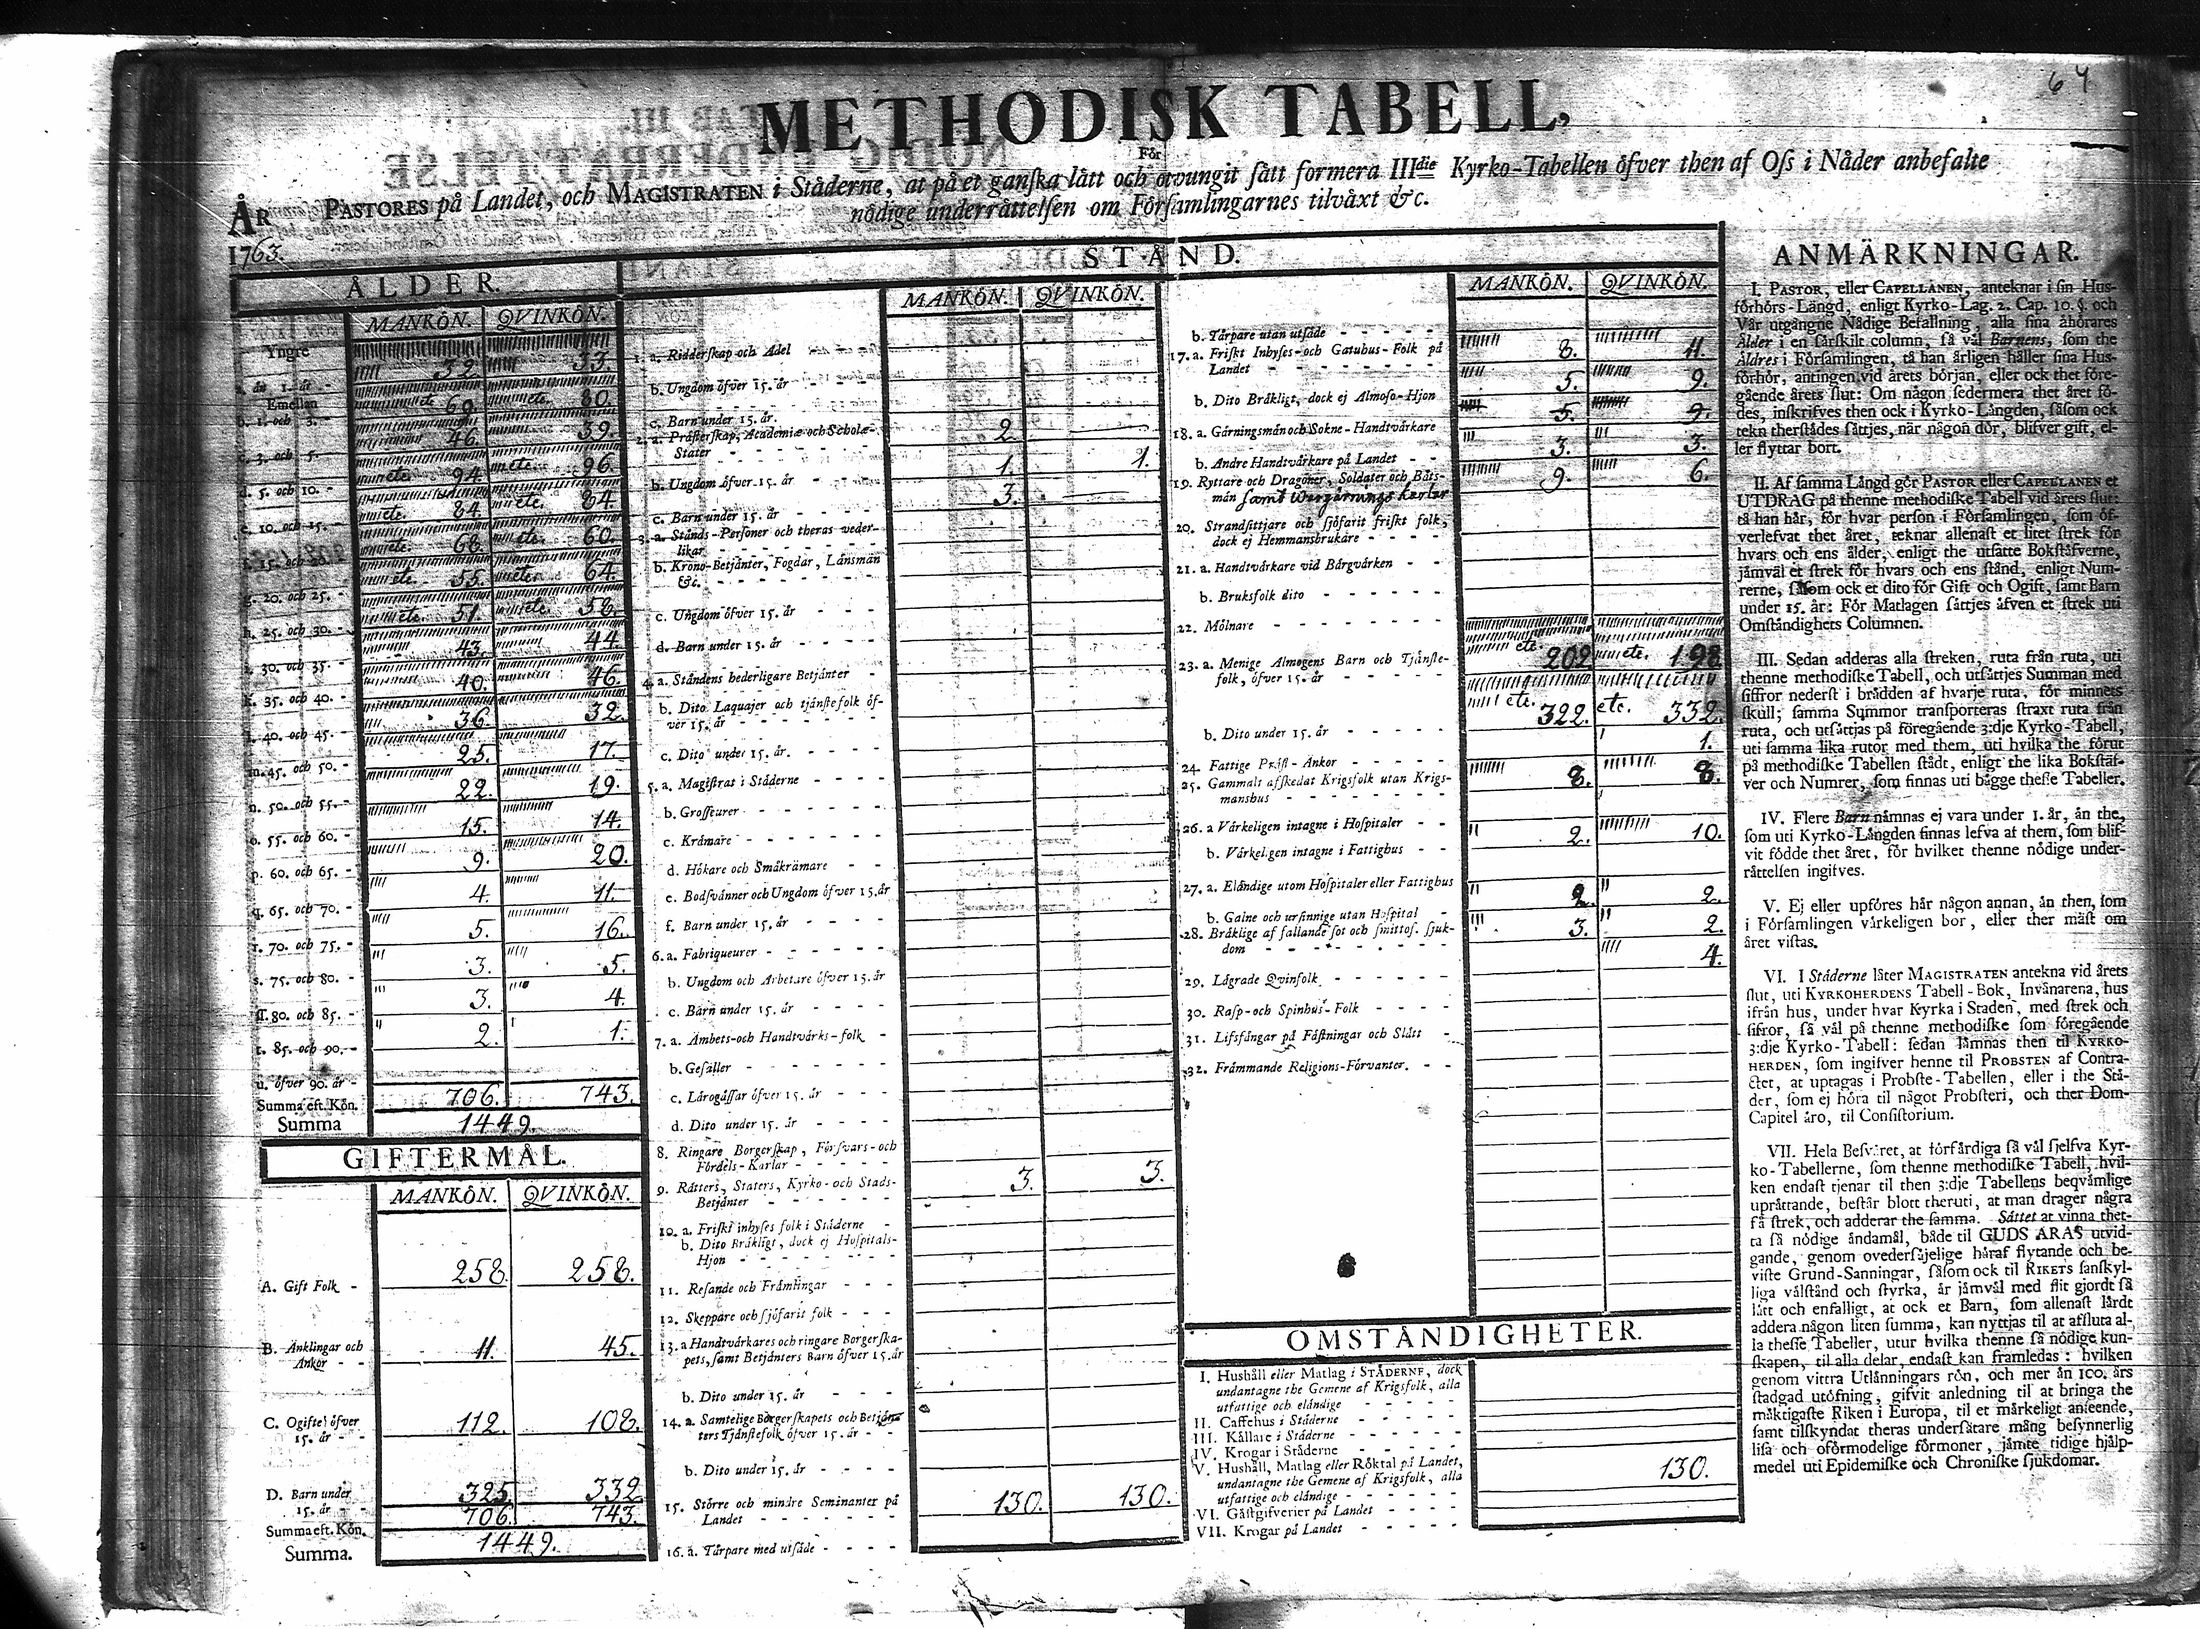 64
METHODISK TABELL,
För
PASTORES på Landet, och MAGISTRATEN i Städerne, at på et ganska lätt och otvungit sätt formera IIIdie Kyrko-Tabellen öfver then af Oss i Nåder anbefalte
nödige underrättelsen om Församlingarnes tilväxt &c.
ÅR
1763.
ÅLDER.
MANKÖN. QVINKÖN.
Yngre
a. än 1. år - 32. 33.
Emellan
b. 1. och 3. 69. 80.
c. 3. och 5. 46. 39.
d. 5. och 10. - etc. 94. etc. 96.
e. 10. och 15. - etc. 84. etc. 84.
f. 15. och 20. etc. 68. etc. 60.
g. 20. och 25. - etc. 55. etc. 64.
h. 25. och 30. - etc. 51. etc. 58.
i. 30. och 35. - 43. 44.
k. 35. och 40. - 40. 46.
l. 40. och 45. - 36. 32.
m. 45. och 50. - 25. 17.
n. 50. och 55. - 22. 19.
o. 55. och 60. - 15. 14.
p. 60. och 65. - 9. 20.
q. 65. och 70. - 4. 11.
r. 70. och 75. - 5. 16.
s. 75. och 80. - 3. 5.
ss. 80. och 85. - 3. 4.
t. 85. och 90. - 2. 1.
u. öfver 90. år -
Summa eft. Kön. 706. 743.
Summa 1449.
GIFTERMÅL.
MANKÖN. QVINKÖN.
A. Gift Folk - 258. 258.
B. Änklingar och
Änkor - - 11. 45.
C. Ogifte öfver
15. år - - 112. 108.
D. Barn under
15. år - - 325. 332.
Summa eft. Kön. 706. 743.
Summa. 1449.
STÅND.
MANKÖN. QVINKÖN.
1. a. Ridderskap och Adel
b. Ungdom öfver 15. år
c. Barn under 15. år.
2. a. Prästerskap, Academiæ och Scholæ-
Stater 2.
b. Ungdom öfver 15. år 1. 1.
c. Barn under 15. år 3.
3. a. Stånds-Personer och theras veder-
likar
b. Krono-Betjänter, Fogdar, Länsmän
&c.
c. Ungdom öfver 15. år
d. Barn under 15. år
4. a. Ståndens hederligare Betjänter
b. Dito Laquajer och tjänstefolk öf-
ver 15. år
c. Dito under 15. år.
5. a. Magistrat i Städerne
b. Grosseurer
c. Krämare
d. Hökare och Småkrämare
e. Bodsvänner och Ungdom öfver 15. år
f. Barn under 15. år
6. a. Fabriqueurer
b. Ungdom och Arbetare öfver 15. år
c. Barn under 15. år
7. a. Ämbets-och Handtvärks-folk
b. Gesäller
c. Lärogåssar öfver 15. år
d. Dito under 15. år
8. Ringare Borgerskap, Försvars-och
Fördels-Karlar
9. Rätters, Staters, Kyrko-och Stads-
Betjänter 3. 3.
10. a. Friskt inhyses folk i Städerne
b. Dito Bräkligt, dock ej Hospitals-
Hjon
11. Resande och Främlingar
12. Skeppare och sjöfarit folk
13. a Handtvärkares och ringare Borgerska-
pets, samt Betjänters Barn öfver 15. år
b. Dito under 15. år
14. a. Samtelige Borgerskapets och Betjän-
ters Tjänstefolk öfver 15. år
b. Dito under 15. år
15. Större och mindre Seminanter på
Landet 130. 130.
16. a. Tärpare med utsäde
MANKÖN. QVINKÖN.
b. Tärpare utan utsäde
17. a. Friskt Inhyses-och Gatuhus-Folk på
Landet 8. 11.
b. Dito Bräkligt, dock ej Almoso-Hjon 5. 9.
18. a. Gärningsmän och Sokne-Handtvärkare 5. 9.
b. Andre Handtvärkare på Landet 3. 3.
19. Ryttare och Dragoner, Soldater och Båts-
män samt Wärgärnings Karlar 9. 6.
20. Strandsittjare och sjöfarit friskt folk,
dock ej Hemmansbrukare
21. a. Handtvärkare vid Bärgvärken
b. Bruksfolk dito
22. Mölnare
23. a. Menige Almogens Barn och Tjänste-
folk, öfver 15. år etc. 202 etc. 198.
b. Dito under 15. år etc. 322. etc. 332.
24. Fattige Präst-Änkor 1.
25. Gammalt afskedat Krigsfolk utan Krigs-
manshus 8. 8.
26. a Värkeligen intagne i Hospitaler
b. Värkeligen intagne i Fattighus 2. 10.
27. a. Eländige utom Hospitaler eller Fattighus
b. Galne och ursinnige utan Hospital 2. 2.
28. Bräklige af fallande sot och smittos. sjuk-
dom 3. 2.
4.
29. Lägrade Qvinfolk
30. Rasp-och Spinhus-Folk
31. Lifsfångar på Fästningar och Slått
32. Främmande Religions-Förvanter.
OMSTÄNDIGHETER.
I. Hushåll eller Matlag i STÄDERNE, dock
undantagne the Gemene af Krigsfolk, alla
utfattige och eländige
II. Caffehus i Städerne
III. Källare i Städerne
IV. Krogar i Städerne
V. Hushåll, Matlag eller Röktal på Landet, 130.
undantagne the Gemene af Krigsfolk, alla
utfattige och eländige
VI. Gästgifverier på Landet
VII. Krogar på Landet
ANMÄRKNINGAR.
I. PASTOR, eller CAPELLANEN, anteknar i sin Hus-
förhörs-Längd, enligt Kyrko-Lag. 2. Cap. 10. §. och
Vår utgångne Nådige Befallning, alla sina åhörares
Ålder i en särskilt column, så väl Barnens, som the
Äldres i Församlingen, tå han årligen håller sina Hus-
förhör, antingen vid årets början, eller ock thet före-
gående årets slut: Om någon sedermera thet året fö-
des, inskrifves then ock i Kyrko-Längden, såsom ock
tekn therstädes sättjes, när någon dör, blifver gift, el-
ler flyttar bort.
II. Af samma Längd gör PASTOR eller CAPELLANEN et
UTDRAG på thenne methodiske Tabell vid årets slut:
tå han här, för hvar person i Församlingen, som öf-
verlefvat thet året, teknar allenast et litet strek för
hvars och ens ålder, enligt the utsatte Bokstäfverne,
jämväl et strek för hvars och ens stånd, enligt Num-
rerne, såsom ock et dito för Gift och Ogift, samt Barn
under 15. år: För Matlagen sättjes äfven et strek uti
Omständighets Columnen.
III. Sedan adderas alla streken, ruta från ruta, uti
thenne methodiske Tabell, och utsättjes Summan med
siffror nederst i brädden af hvarje ruta, för minnets
skull; samma Summor transporteras straxt ruta från
ruta, och utsättjas på föregående 3:dje Kyrko-Tabell,
uti samma lika rutor med them, uti hvilka the förut
på methodiske Tabellen städt, enligt the lika Bokstäf-
ver och Numrer, som finnas uti bägge thesse Tabeller.
IV. Flere Barn nämnas ej vara under 1. år, än the,
som uti Kyrko-Längden finnas lefva af them, som blif-
vit födde thet året, för hvilket thenne nödige under-
rättelsen ingifves.
V. Ej eller upföres här någon annan, än then, som
i Församlingen värkeligen bor, eller ther mäst om
året vistas.
VI. I Städerne låter MAGISTRATEN antekna vid årets
slut, uti KYRKOHERDENS Tabell-Bok, Invånarena, hus
ifrån hus, under hvar Kyrka i Staden, med strek och
sifror, så väl på thenne methodiske som föregående
3:dje Kyrko-Tabell: sedan lämnas then til KYRKO-
HERDEN, som ingifver henne til PROBSTEN af Contra-
ctet, at uptagas i Probste-Tabellen, eller i the Stä-
der, som ej höra til något Probsteri, och ther Dom-
Capitel äro, til Consistorium.
VII. Hela Besväret, at förfärdiga så väl sjelfva Kyr-
ko-Tabellerne, som thenne methodiske Tabell, hvil-
ken endast tjenar til then 3:dje Tabellens beqvämlige
uprättande, består blott theruti, at man drager några
få strek, och adderar the samma. Sättet at vinna thet-
ta så nödige ändamål, både til GUDS ÄRAS utvid-
gande, genom ovedersäjelige häraf flytande och be-
viste Grund-Sanningar, såsom ock til RIKETS sanskyl-
liga välstånd och styrka, är jämväl med flit gjordt så
lätt och enfalligt, at ock et Barn, som allenast lärdt
addera någon liten summa, kan nyttjas til at afsluta al-
la thesse Tabeller, utur hvilka thenne så nödige kun-
skapen, til alla delar, endast kan framledas: hvilken
genom vittra Utlänningars rön, och mer än 100. års
stadgad utöfning, gifvit anledning til at bringa the
mäktigaste Riken i Europa, til et märkeligt anseende,
samt tilskyndat theras undersåtare mång besynnerlig
lisa och oförmodelige förmoner, jämte tidige hjälp-
medel uti Epidemiske och Chroniske sjukdomar.